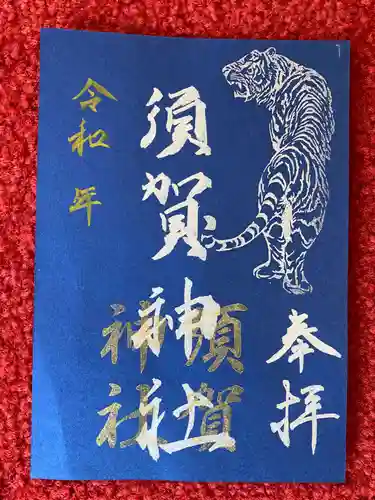 奉拝
須賀神社
須賀
神社
令和 年